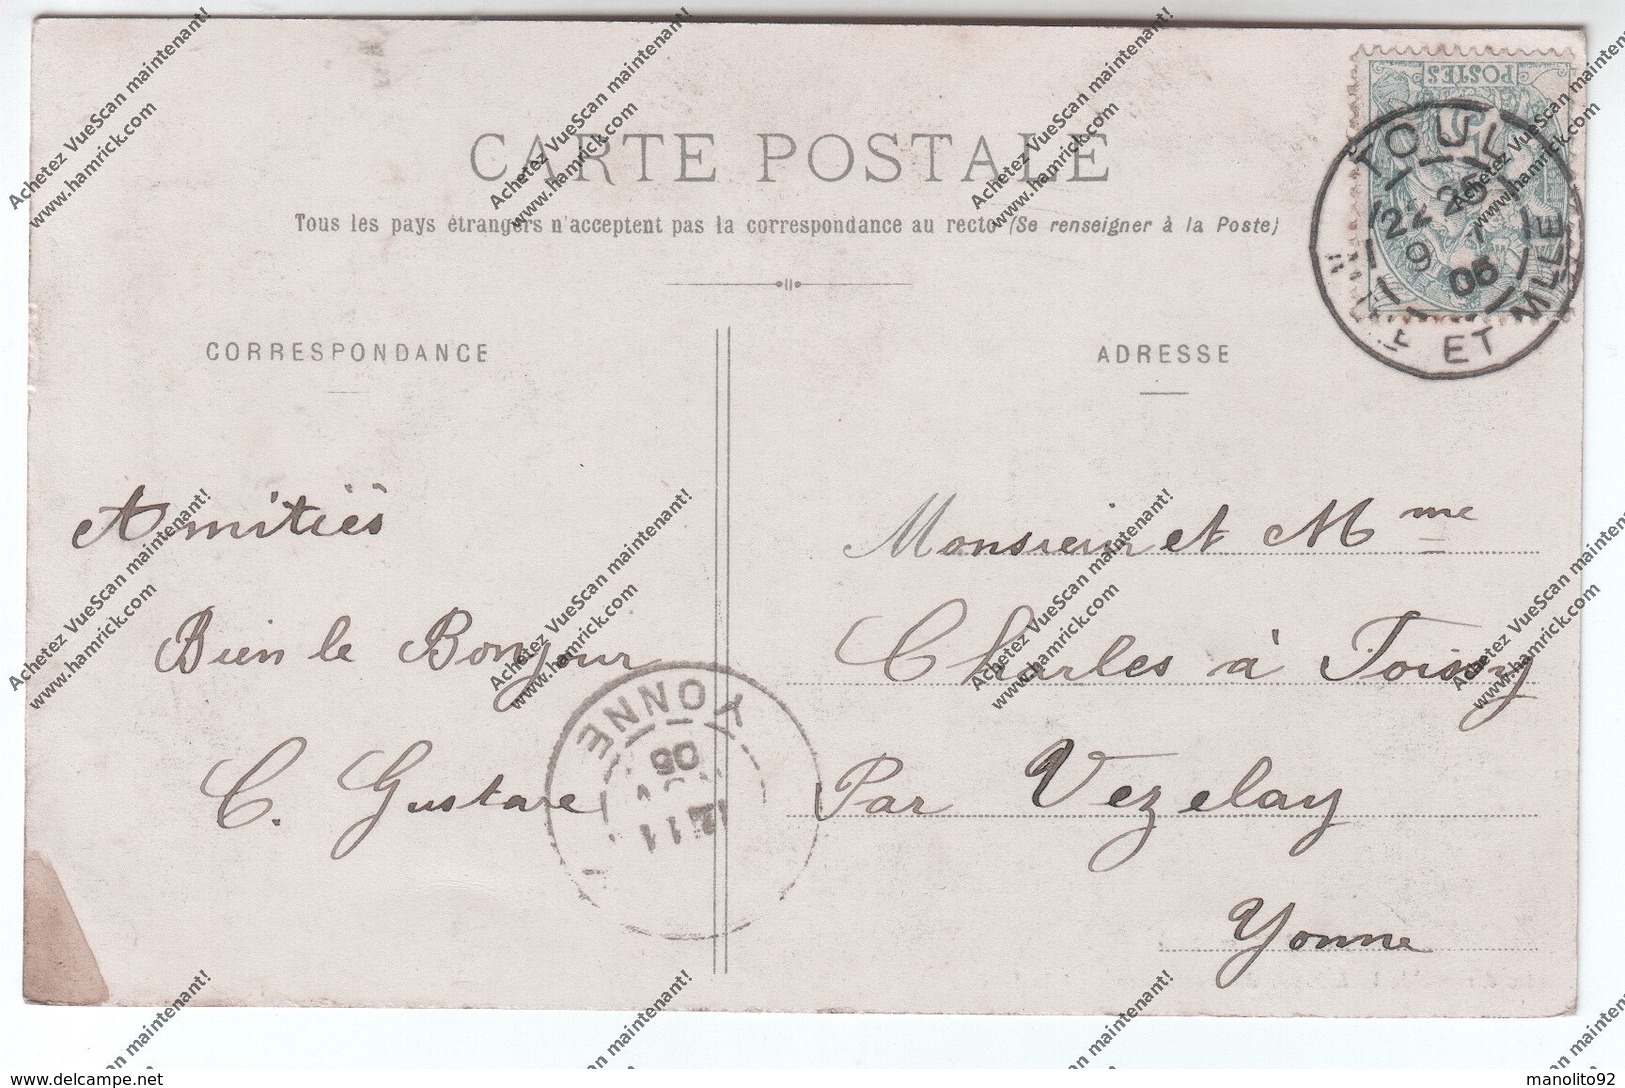 CARTE POSTALE
Tous les pays étrangers n'acceptent pas la correspondance au recto (Se renseigner à la Poste)
POSTES
TOUL
22 25
9 7
05
ET MLLE
CORRESPONDANCE
ADRESSE
Amitiés
Bien le Bonjour
C. Gustave
Monsieur et Mme
Charles à Toissy
Par Vezelay
Yonne
YONNE
05
Achetez VueScan maintenant!
www.hamrick.com
www.delcampe.net
manolito92